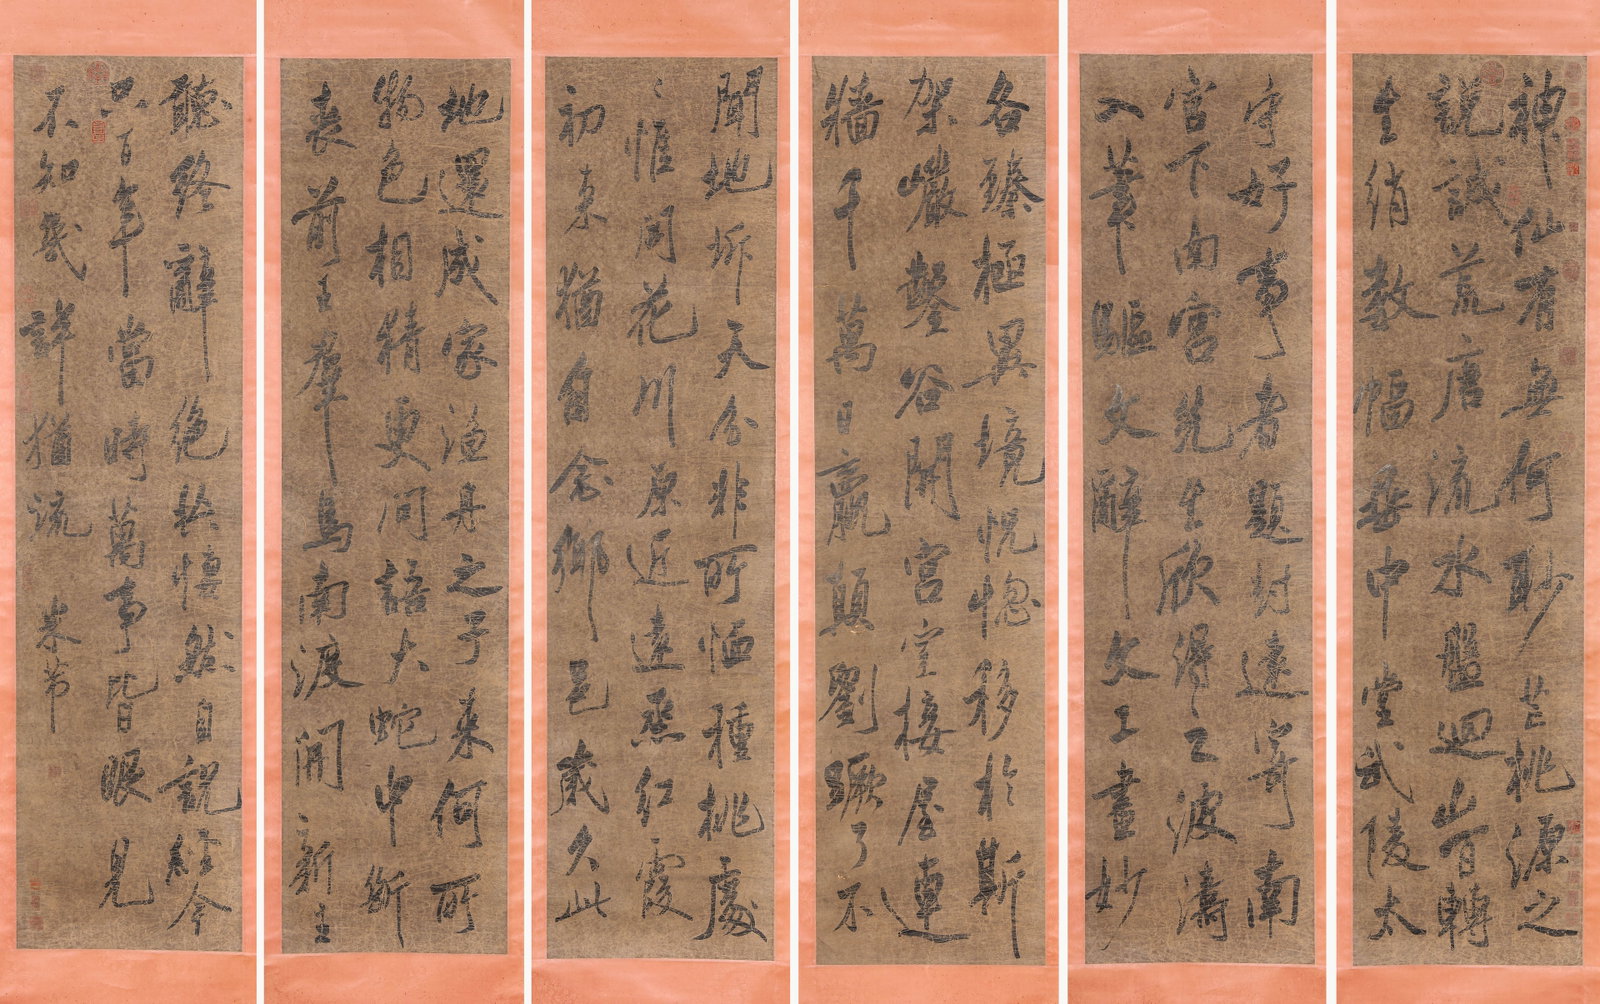 神仙有無何眇芒桃源之
說誠荒唐流水盤迴山百轉
生綃數幅垂中堂武陵太
守好事者題封遠寄南
宮下南宮先生欣得之波濤
入筆驅文辭文工畫妙
各臻極異境恍惚移於斯
架巖鑿谷開宮室接屋連
牆千萬日嬴顛劉蹶了不
聞地坼天分非所恤種桃處
〻惟開花川原近遠蒸紅霞
初來猶自念鄉邑歲久此
地還成家漁舟之子來何所
物色相猜更問語大蛇中斷
喪前王羣馬南渡開新主
聽終辭絕共悽然自說經今
六百年當時萬事皆眼見
不知幾許猶流 米芾